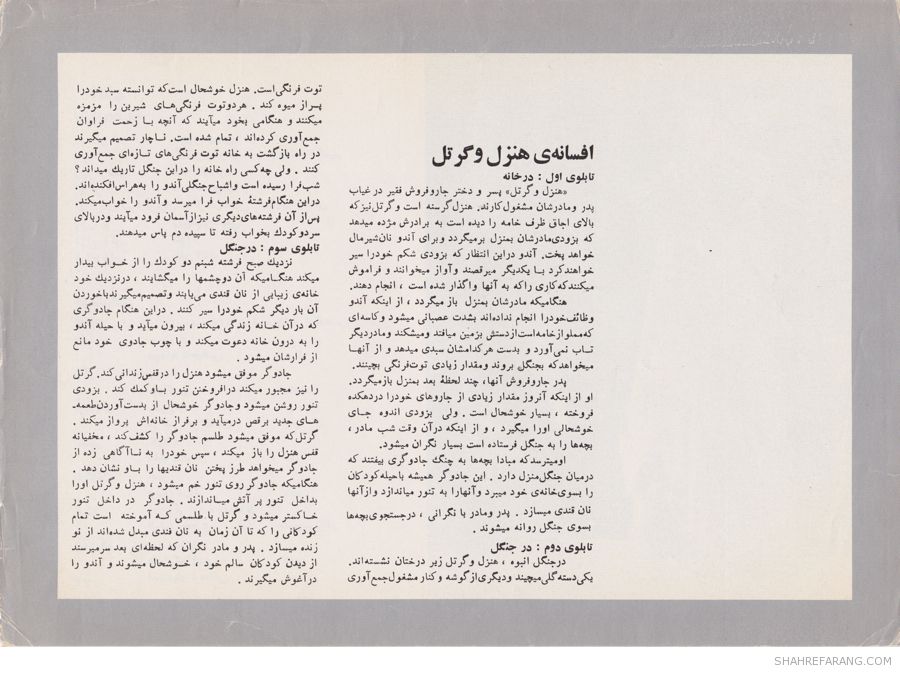 افسانه‌ی هنزل وگرتل
تابلوی اول : درخانه
«هنزل وگرتل» پسر و دختر جاروفروش فقیر در غیاب
پدر ومادرشان مشغول‌کارند. هنزل‌گرسنه است وگرتل‌نیز‌که
بالای اجاق ظرف خامه را دیده است به برادرش مژده میدهد
که بزودی‌مادرشان بمنزل برمیگردد وبرای آندو نان‌شیرمال
خواهد پخت. آندو دراین انتظار که بزودی شکم خودرا سیر
خواهندکرد بــا یکدیگر میرقصند وآواز میخوانند و فراموش
میکنندکه‌کاری راکه به آنها واگذار شده است ، انجام دهند.
هنگامیکه مادرشان بمنزل باز میگردد ، از اینکه آندو
وظائف‌خودرا انجام نداده‌اند بشدت عصبانی میشود وکاسه‌ای
که‌مملو‌از‌خامه‌است‌ازدستش بزمین میافتد ومیشکند ومادر‌دیگر
تــاب نمی‌آورد و بدست هرکدامشان سبدی میدهد و از آنهــا
میخواهدکه بجنگل بروند ومقدار زیادی توت‌فرنگی بچینند.
پدر جاروفروش آنها، چند لحظهٔ بعد بمنزل بازمیگردد.
او از اینکه آنروز مقدار زیادی از جاروهای خودرا دردهکده
فروخته ، بسیار خوشحال است . ولی بزودی اندوه جــای
خوشحالی اورا میگیرد ، و از اینکه درآن وقت شب مادر ،
بچه‌ها را به جنگل فرستاده است بسیار نگران میشود.
اومیترسدکه مبادا بچه‌ها به چنگ جادوگری بیفتند که
درمیان جنگل‌منزل دارد . این جادوگر همیشه باحیله‌کودکان
را بسوی‌خانه‌ی خود میبرد وآنهارا به تنور میاندازد وازآنها
نان قندی میسازد . پدر ومادر با نگرانی ، درجستجوی‌بچه‌ها
بسوی جنگل روانه میشوند .
تابلوی دوم : در جنگل
درجنگل انبوه ، هنزل وگرتل زیر درختان نشسته‌اند.
یکی‌دسته‌گلی‌میچیند ودیگری‌از‌گوشه وکنار مشغول‌جمع‌آوری
توت فرنگی‌است. هنزل خوشحال است‌که توانسته سبد خودرا
پــراز میوه کند . هردوتوت فرنگی‌هــای شیرین را مزمزه
میکنند و هنگامی بخود میآیند که آنچه بــا زحمت فراوان
جمع‌آوری کرده‌اند ، تمام شده است. ناچار تصمیم میگیرند
در راه بازگشت به خانه توت فرنگی‌های تازه‌ای جمع‌آوری
کنند . ولی چه‌کسی راه خانه را دراین جنگل تاریك میداند؟
شب‌فرا رسیده است واشباح‌جنگلی‌آندو را به‌هراس‌افکنده‌اند.
دراین هنگام‌فرشتهٔ خواب فرا میرسد وآندو را خواب‌میکند.
پس‌از آن فرشته‌های‌دیگری نیز‌از‌آسمان فرود میآیند ودربالای
سردوکودك بخواب رفته تا سپیده دم پاس میدهند.
تابلوی سوم : درجنگل
نزدیك صبح فرشته شبنم دو کودك را از خــواب بیدار
میکند هنگــامیکه آن دوچشمها را میگشایند ، درنزدیك خود
خانه‌ی زیبایی از نان قندی می‌یابند وتصمیم‌میگیرند‌باخوردن
آن بار دیگر شکم خودرا سیر کنند . دراین هنگام جادوگری
که درآن خــانه زندگی میکند ، بیرون میآید و با حیله آندو
را به درون خانه دعوت میکند و با چوب جادوی خود مانع
از فرارشان میشود .
جادوگر موفق میشود هنزل را درقفس‌زندانی‌کند. گرتل
را نیز مجبور میکند درافروختن تنور باوکمك کند . بزودی
تنور روشن میشود وجادوگر خوشحال از بدست‌آوردن‌طعمه‌ـ
هــای جدید برقص درمیآید و برفراز خانه‌اش پرواز میکند .
گرتل‌که موفق میشود طلسم جادوگر را کشف‌کند ، مخفیانه
قفس هنزل را باز میکند ، سپس خودرا به نــاآگاهی زده از
جادوگر میخواهد طرز پختن نان قندیها را بــاو نشان دهد .
هنگامیکه جادوگر روی تنور خم میشود ، هنزل وگرتل اورا
بداخل تنور پر آتش میــاندازند . جادوگر در داخل تنور
خــاکستر میشود و گرتل با طلسمی که آموخته است تمام
کودکانی را که تا آن زمان به نان قندی مبدل شده‌اند از نو
زنده میسازد . پدر و مادر نگران که لحظه‌ای بعد سرمیرسند
از دیدن کودکان سالم خود ، خــوشحال میشوند و آندو را
درآغوش میگیرند .
SHAHREFARANG.COM